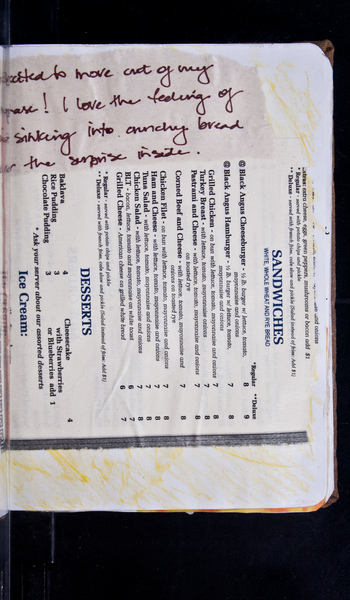 to move out of my
! I love the feeling of
sinking into crunchy bread
the surprise inside.
Extras: extra cheese, egg, green peppers, mushrooms or bacon add $1
* Regular - served with potato chips and pickle
** Deluxe - served with french fries, cole slaw and pickle (Salad instead of fries: Add $1)
SANDWICHES
WHITE, WHOLE WHEAT AND RYE BREAD
*Regular **Deluxe
@ Black Angus Cheeseburger - ½ lb. burger w/ lettuce, tomato, mayonnaise and onions 8 9
@ Black Angus Hamburger - ½ lb. burger w/ lettuce, tomato, mayonnaise and onions 7 8
Grilled Chicken - on bun with lettuce, tomato, mayonnaise and onions 7 8
Turkey Breast - with lettuce, tomato, mayonnaise and onions 7 8
Pastrami and Cheese - with lettuce, tomato, mayonnaise and onions on toasted rye 7 8
Corned Beef and Cheese - with lettuce, tomato, mayonnaise and onions on toasted rye 7 8
Chicken Filet - on bun with lettuce, tomato, mayonnaise and onions 7 8
Ham and Cheese - with lettuce, tomato, mayonnaise and onions 7 8
Tuna Salad - with lettuce, tomato, mayonnaise and onions 7 8
Chicken Salad - with lettuce, tomato, mayonnaise and onions 7 8
BLT - bacon, lettuce, tomato and mayonnaise on white toast 6 7
Grilled Cheese - American cheese on grilled white bread 6 7
* Regular - served with potato chips and pickle
** Deluxe - served with french fries, cole slaw and pickle (Salad instead of fries: Add $1)
DESSERTS
Baklava 4
Rice Pudding 4
Chocolate Pudding 3
Cheesecake 4
with Strawberries
or Blueberries add 1
* Ask your server about our assorted desserts
Ice Cream: